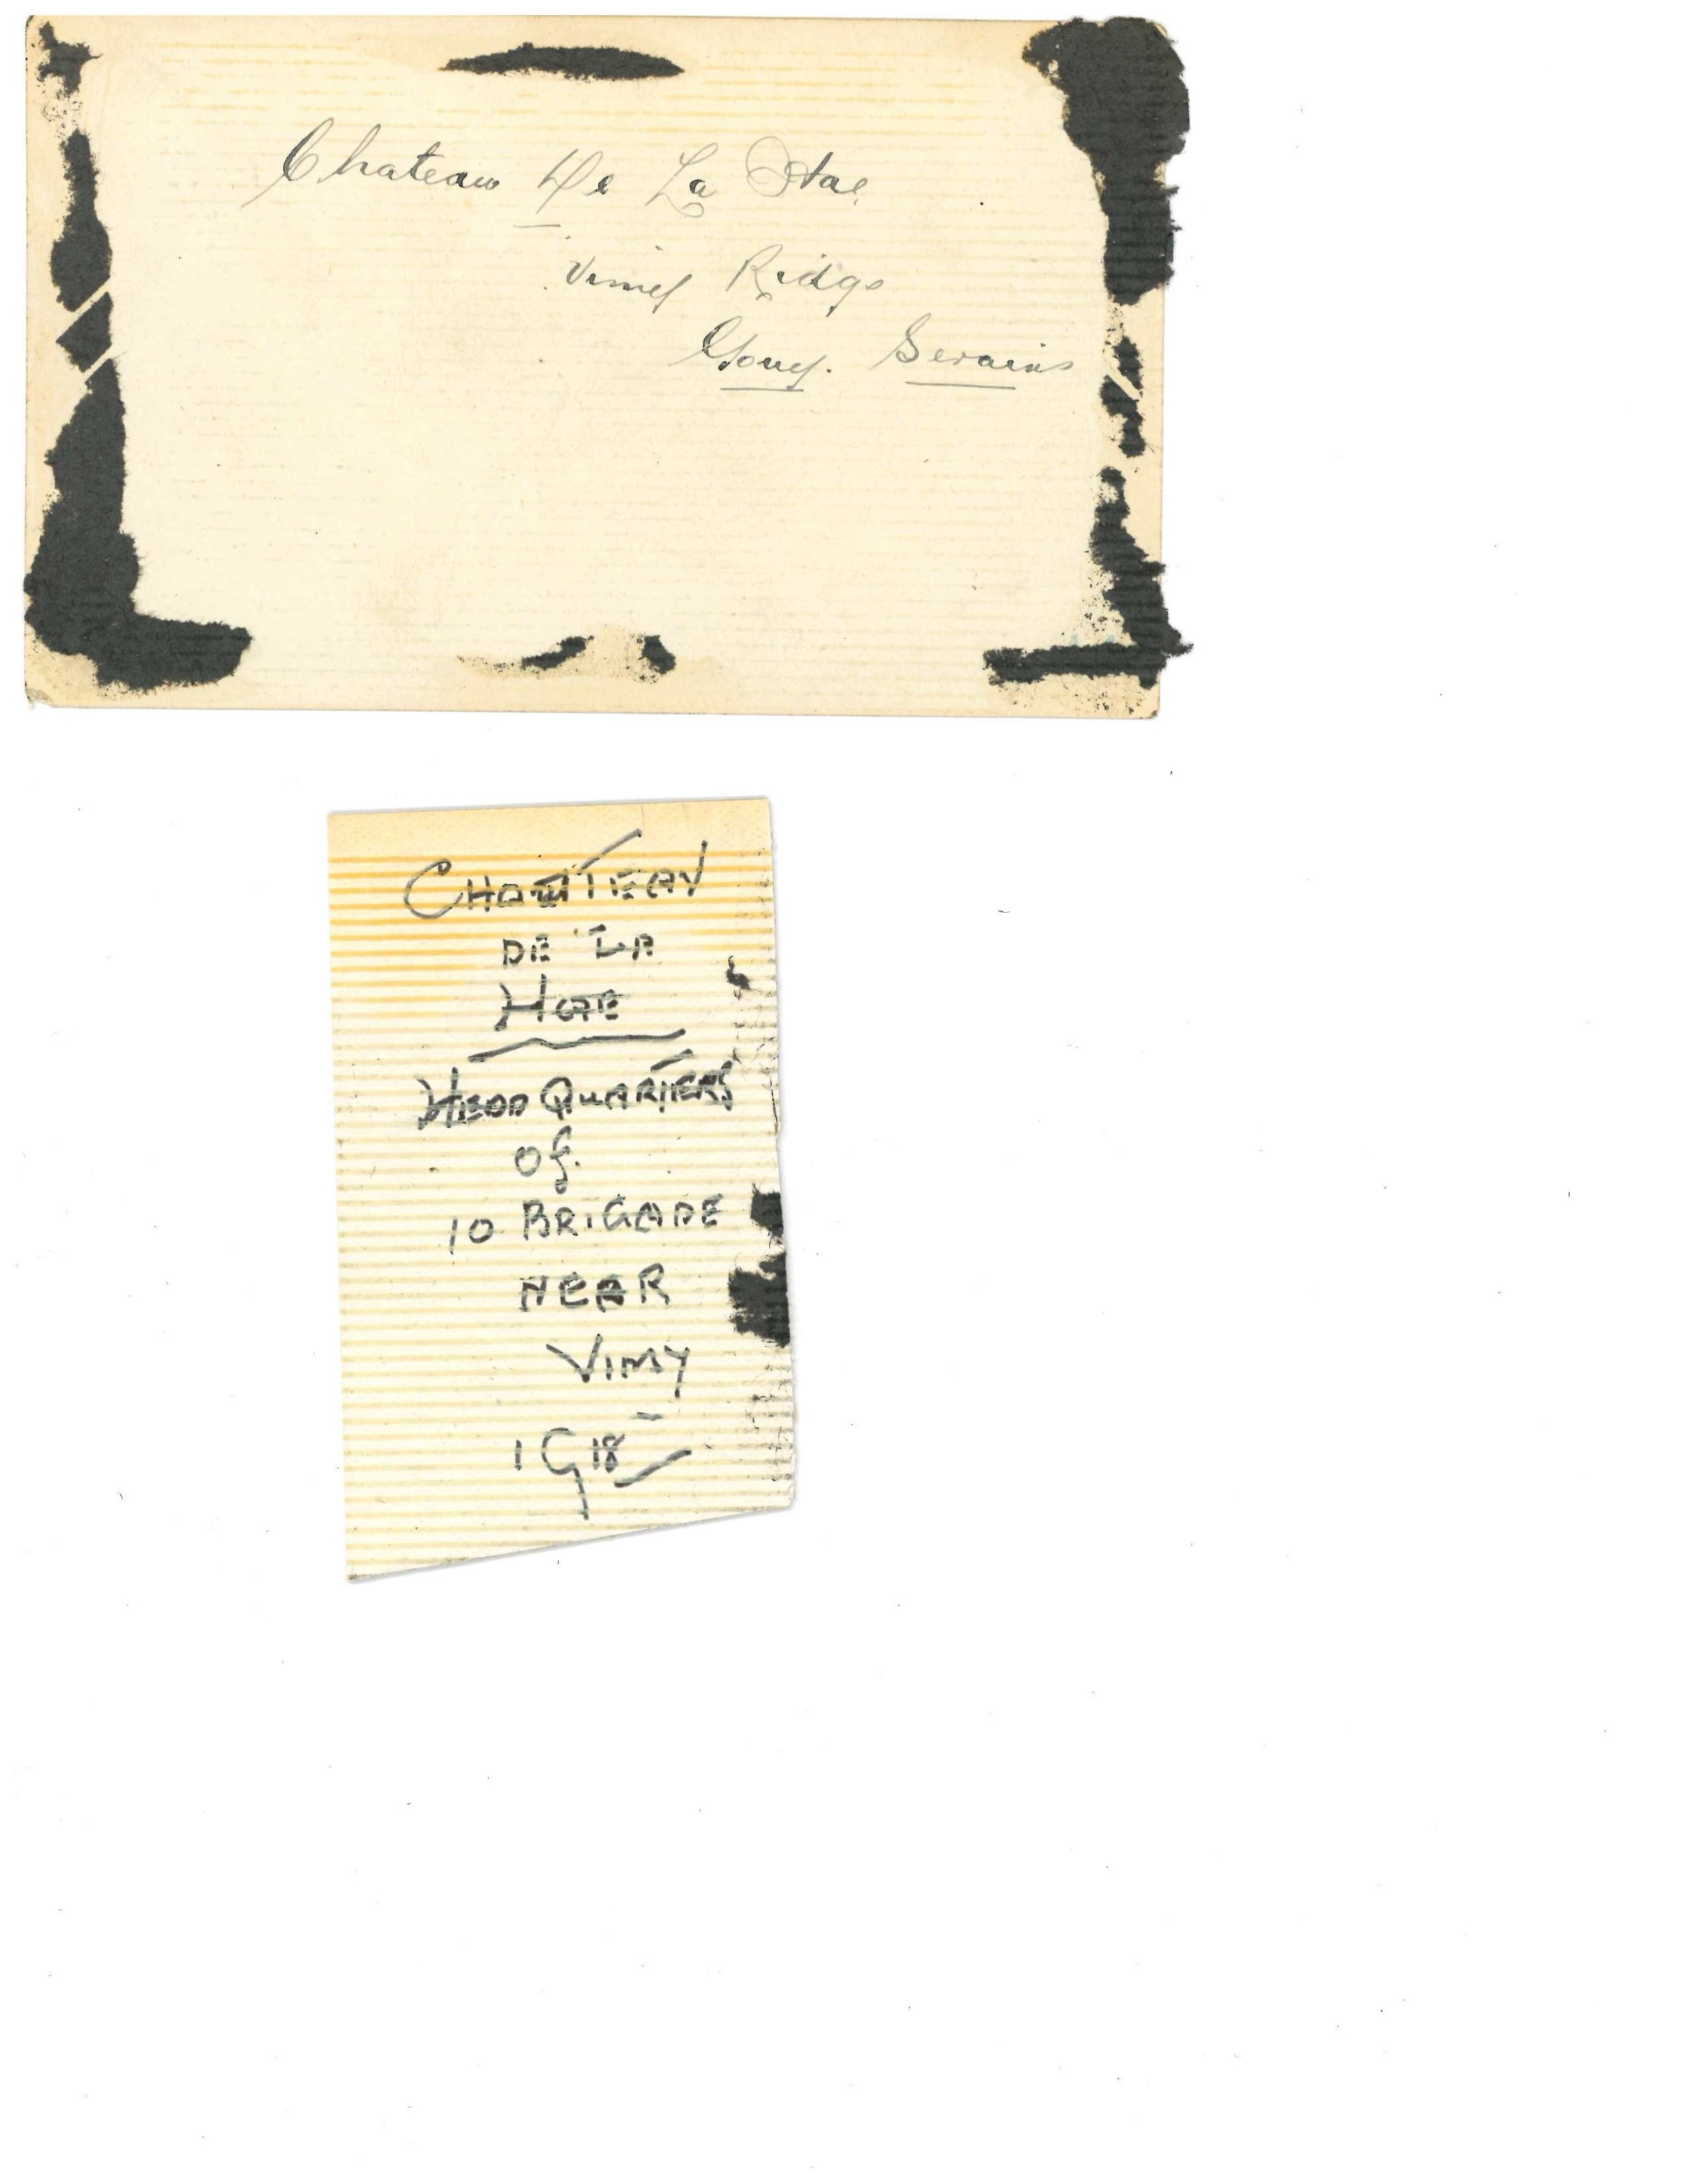 Chateau De La Hae
Vimey Ridge
Gouy. Serains
CHATTEAU
DE LA
HAE
HEAD QUARTERS
of
10 BRIGADE
NEAR
VIMY
1918